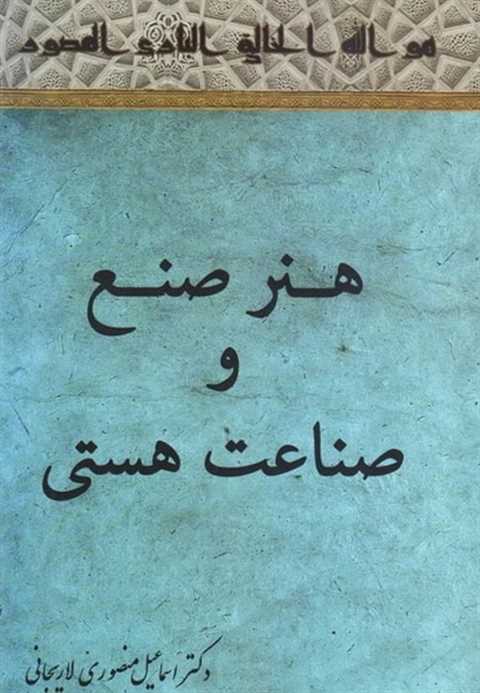 هو الله الخالق البارئ المصور
هنر صنع
و
صناعت هستی
دکتر اسماعیل منصوری لاریجانی